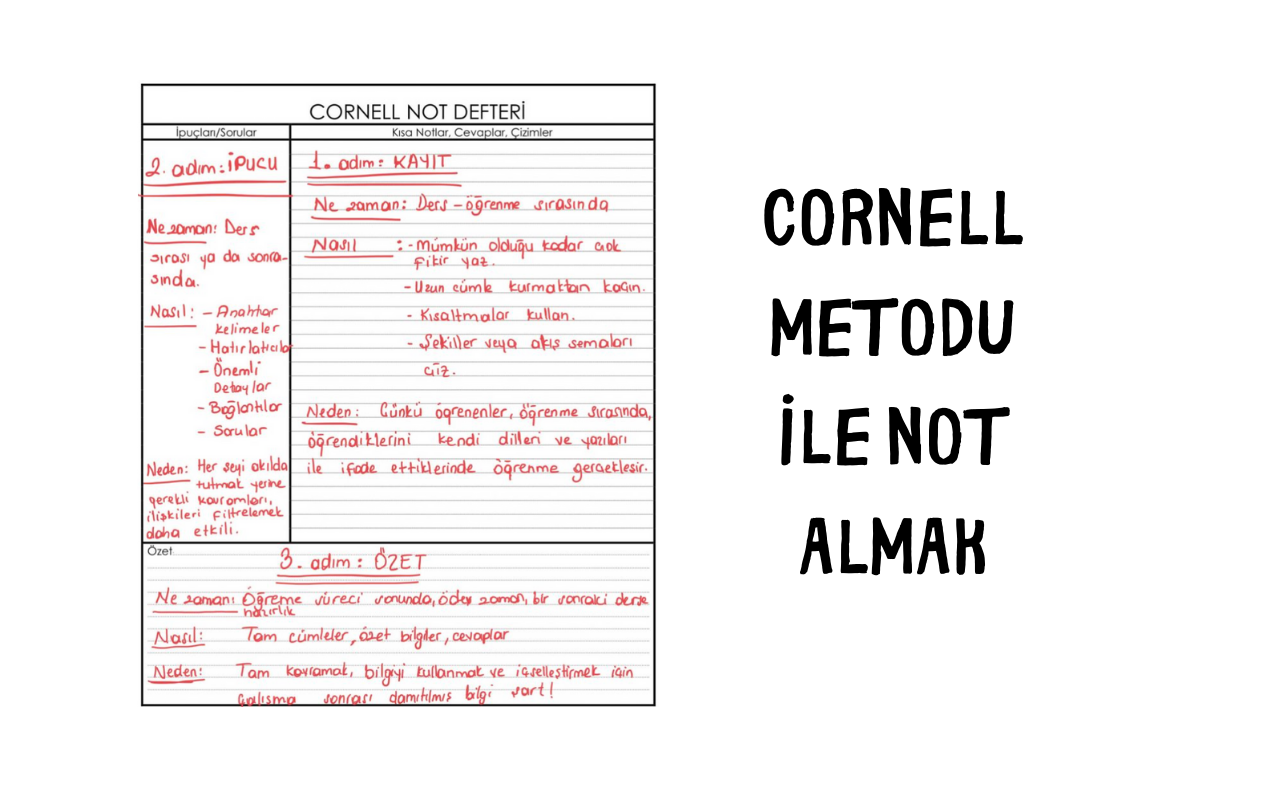 CORNELL NOT DEFTERİ
İpuçları/Sorular
Kısa Notlar, Cevaplar, Çizimler
2. adım: İPUCU
Ne zaman: Ders
sırası ya da sonra-
sında.
Nasıl: - Anahtar
kelimeler
- Hatırlatıcılar
- Önemli
Detaylar
- Bağlantılar
- Sorular
Neden: Her şeyi akılda
tutmak yerine
gerekli kavramları,
ilişkileri filtrelemek
daha etkili.
1. adım: KAYIT
Ne zaman: Ders - öğrenme sırasında
Nasıl : - Mümkün olduğu kadar çok
fikir yaz.
- Uzun cümle kurmaktan kaçın.
- Kısaltmalar kullan.
- Şekiller veya akış şemaları
çiz.
Neden: Çünkü öğrenenler, öğrenme sırasında,
öğrendiklerini kendi dilleri ve yazıları
ile ifade ettiklerinde öğrenme gerçekleşir.
Özet
3. adım: ÖZET
Ne zaman: Öğreme süreci sonunda, ödev zamanı, bir sonraki derse
hazırlık
Nasıl: Tam cümleler, özet bilgiler, cevaplar
Neden: Tam kavramak, bilgiyi kullanmak ve içselleştirmek için
çalışma sonrası damıtılmış bilgi şart!
CORNELL
METODU
İLE NOT
ALMAK